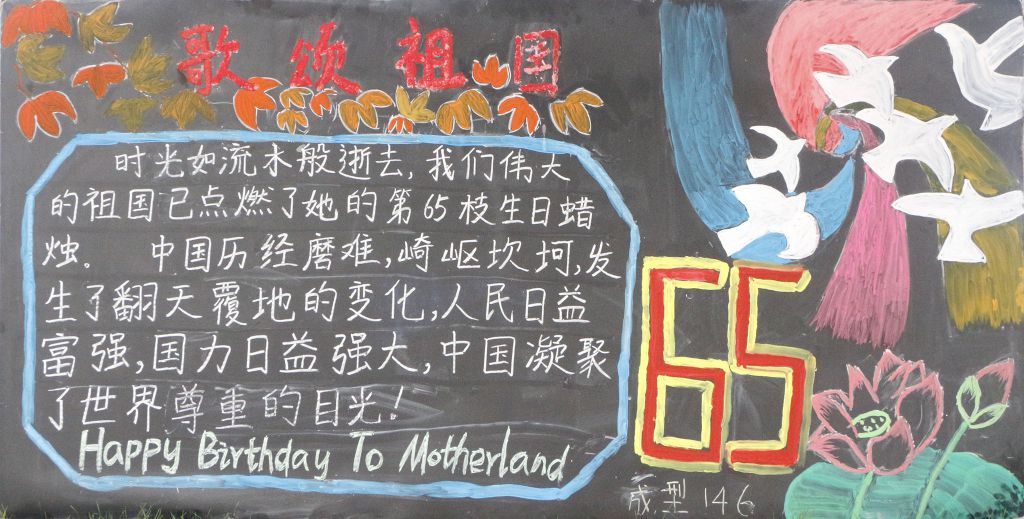 歌颂祖国
时光如流水般逝去,我们伟大
的祖国已点燃了她的第65枝生日蜡
烛。 中国历经磨难,崎岖坎坷,发
生了翻天覆地的变化,人民日益
富强,国力日益强大,中国凝聚
了世界尊重的目光!
Happy Birthday To Motherland
65
成型146